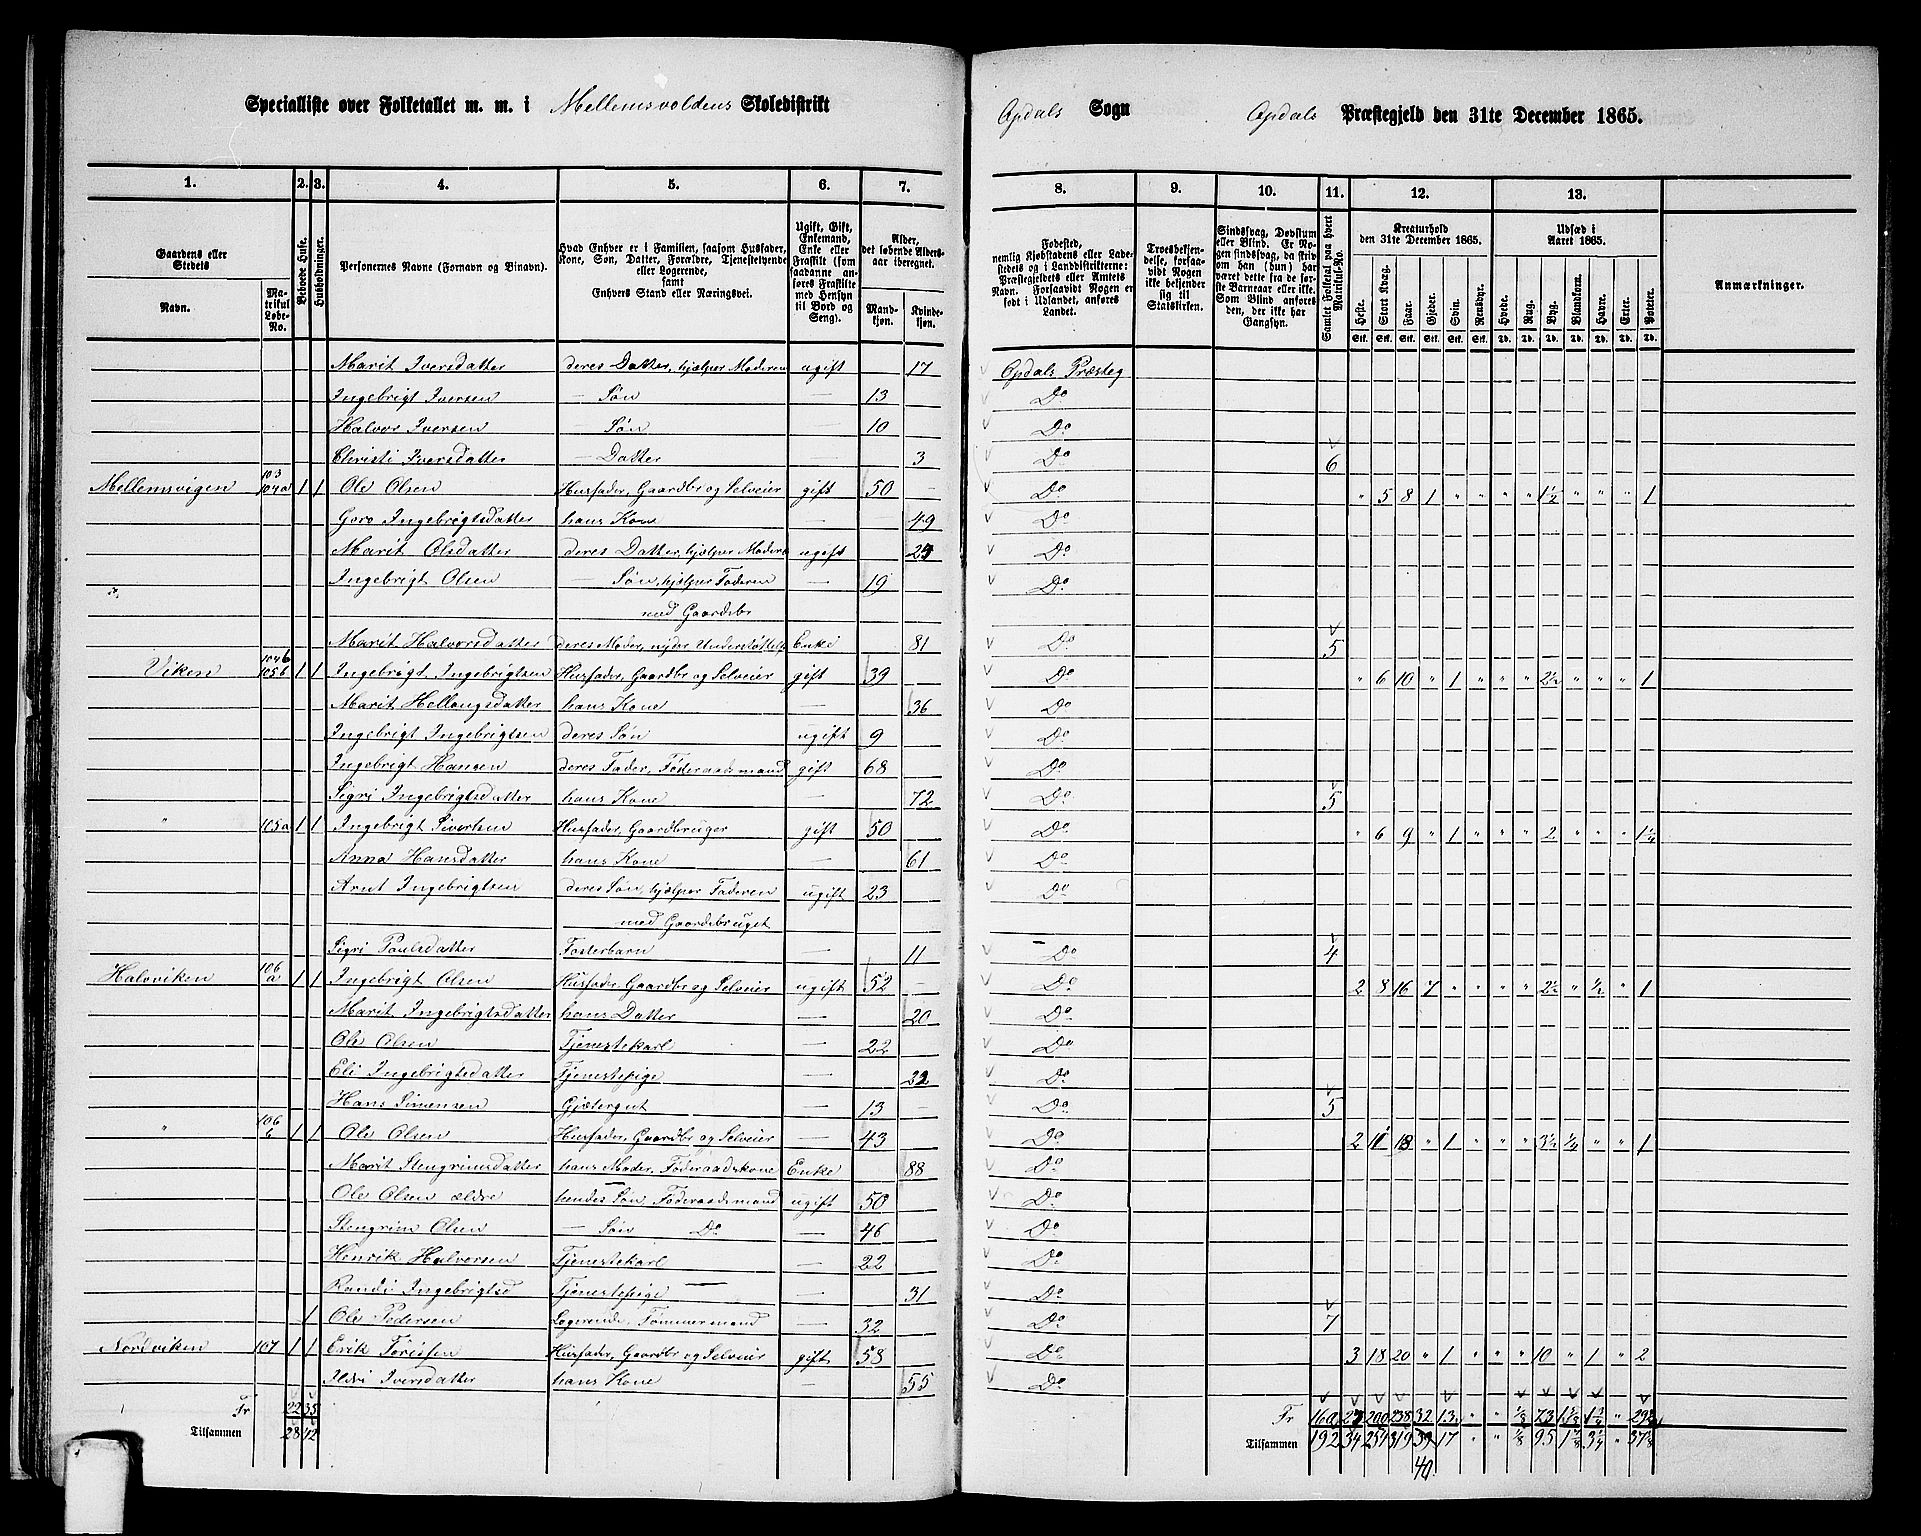 Specialliste over Folketallet m. m. i Mellemsvoldens Skoledistrikt Opdals Sogn Opdals Præstegjeld den 31te December 1865.
1. 2. 3. 4. 5. 6. 7. 8. 9. 10. 11. 12. 13.
Gaardens eller Stedets Navn. Matrikul Løbe-No. Beboede Huse. Husholdninger. Personernes Navne (Fornavn og Tilnavn).
Hvad Enhver er i Familien, saasom Husfader, Kone, Søn, Datter, Forældre, Tjenestetyende eller Logerende, samt Enhvers Stand eller Næringsvei.
Ugift, Gift, Enkemand, Enke eller Fraskilt (som saadanne anføres Fraskilte med Hensyn til Bord og Seng).
Alder, det løbende Aldersaar iberegnet. Mandkjøn. Kvindekjøn.
Fødested, nemlig Kjøbstadens eller Ladestedets og i Landdistrikterne: Præstegjeldets eller Amtets Navn. Forsaavidt Nogen er født i Udlandet, anføres Landet.
Troesbekjendelse, forsaavidt Nogen ikke bekjender sig til Statskirken.
Sindssvag, Døvstum eller Blind. Er Nogen sindssvag, da skriv om han (hun) har været dette fra de første Barneaar eller ikke. Som Blind anføres den, der ikke har Gangsyn.
Samlet Folketal paa hvert Matrikul-No.
Kreaturhold den 31te December 1865. Heste. Stort Kvæg. Faar. Gjeder. Svin. Rensdyr.
Udsæd i Aaret 1865. Hvede. Rug. Byg. Blandkorn. Havre. Erter. Poteter.
Anmærkninger.
Marit Iversdatter deres Datter, hjælper Moderen ugift 17 Opdals Præsteg
Ingebrigt Iversen — Søn — 13 Do
Halvor Iversen — Søn — 10 Do
Christi Iversdatter — Datter — 3 Do 6
Mellemsvigen 103 104a 1 1 Ole Olsen Husfader, Gaardbr og Selveier gift 50 Do " 5 8 1 " " " " 1½ " " " 1
Goro Ingebrigtsdatter hans Kone — 49 Do
Marit Olsdatter deres Datter, hjælper Modere ugift Do
Ingebrigt Olsen — Søn, hjælper Faderen — 19 Do
med Gaardsbr
Marit Halvorsdatter deres Moder, nyder Understøttelse Enke 81 Do 5
Viken 104b 105b 1 1 Ingebrigt Ingebrigtsen Husfader, Gaardbr og Selveier gift 39 Do " 6 10 " 1 " " " 2½ " " " 1
Marit Hellongsdatter hans Kone — 36 Do
Ingebrigt Ingebrigtsen deres Søn ugift 9 Do
Ingebrigt Hansen deres Fader, Føderaadsmand gift 68 Do
Sigri Ingebrigtsdatter hans Kone — 72 Do 5
" 105a 1 1 Ingebrigt Sivertsen Husfader, Gaardbruger gift 50 Do " 6 9 " 1 " " " 2 " " " 1¼
Anna Hansdatter hans Kone — 61 Do
Arnt Ingebrigtsen deres Søn, hjælper Faderen ugift 23 Do
med Gaardsbruget
Sigri Paulsdatter Fosterbarn — 11 Do 4
Halvviken 106 a 1 1 Ingebrigt Olsen Husfader, Gaardbr og Selveier ugift 52 Do 2 8 16 7 " " " " 2½ " ½ " 1
Marit Ingebrigtsdatter hans Datter — 20 Do
Ole Olsen Tjenestekarl — 22 Do
Eli Ingebrigtsdatter Tjenestepige — 22 Do
Hans Simensen Gjætergut — 13 Do 5
" 106 b 1 1 Ole Olsen Husfader, Gaardbr og Selveier — 43 Do 2 11 18 " 1 " " " 3½ ¼ " " 1
Marit Stengrimsdatter hans Moder, Føderaadskone Enke 88 Do
Ole Olsen ældre hendes Søn Føderaadsmand ugift 50 Do
Stengrim Olsen — Søn Do — 46 Do
Henrik Halvorsen Tjenestekarl — 22 Do
Randi Ingebrigtsd Tjenestepige — 31 Do
1 Ole Pedersen Logerende, Tømmermand — 32 Do 7
Nordviken 107 1 1 Erik Tørissen Husfader, Gaardbr og Selveier gift 58 Do 3 18 20 " 1 " " " 10 " 1 " 2
Ildri Iversdatter hans Kone — 55 Do
Fr 22 35 Fr 160 27 200 238 32 13 " " ⅛ 73
Tilsammen 28 42 Tilsammen 192 34 254 319 39 17 " " ⅛ 95
40